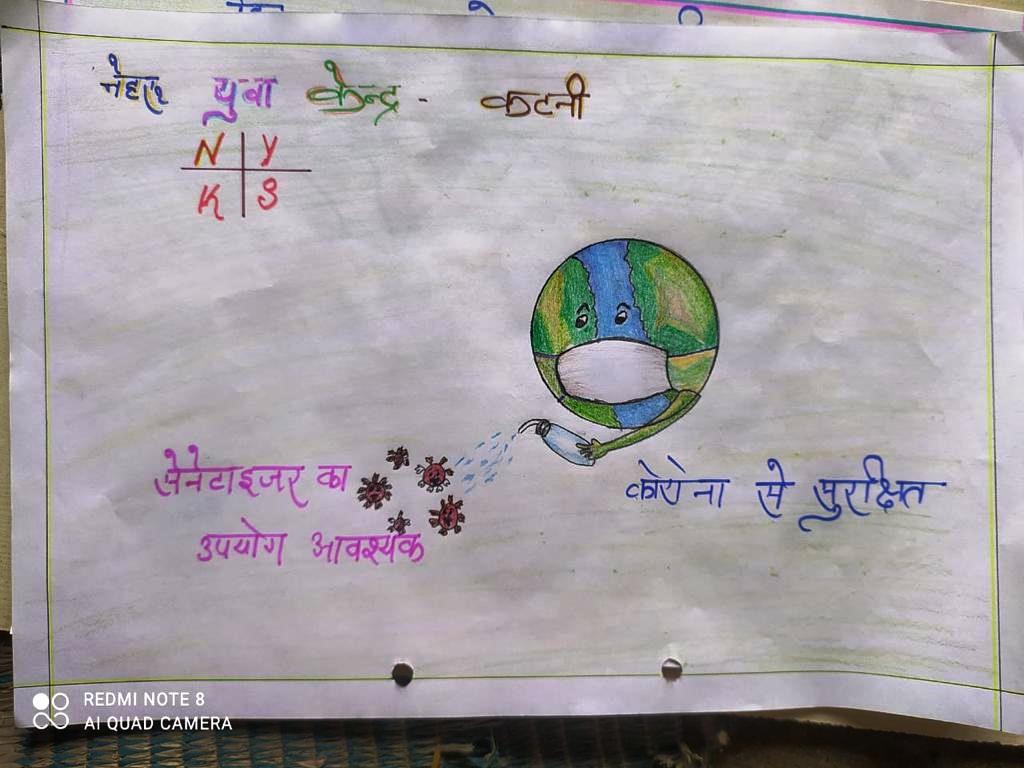 नेहरू युवा केन्द्र - कटनी
N Y
K S
सेनेटाइजर का
उपयोग आवश्यक
कोरोना से सुरक्षित
REDMI NOTE 8
AI QUAD CAMERA